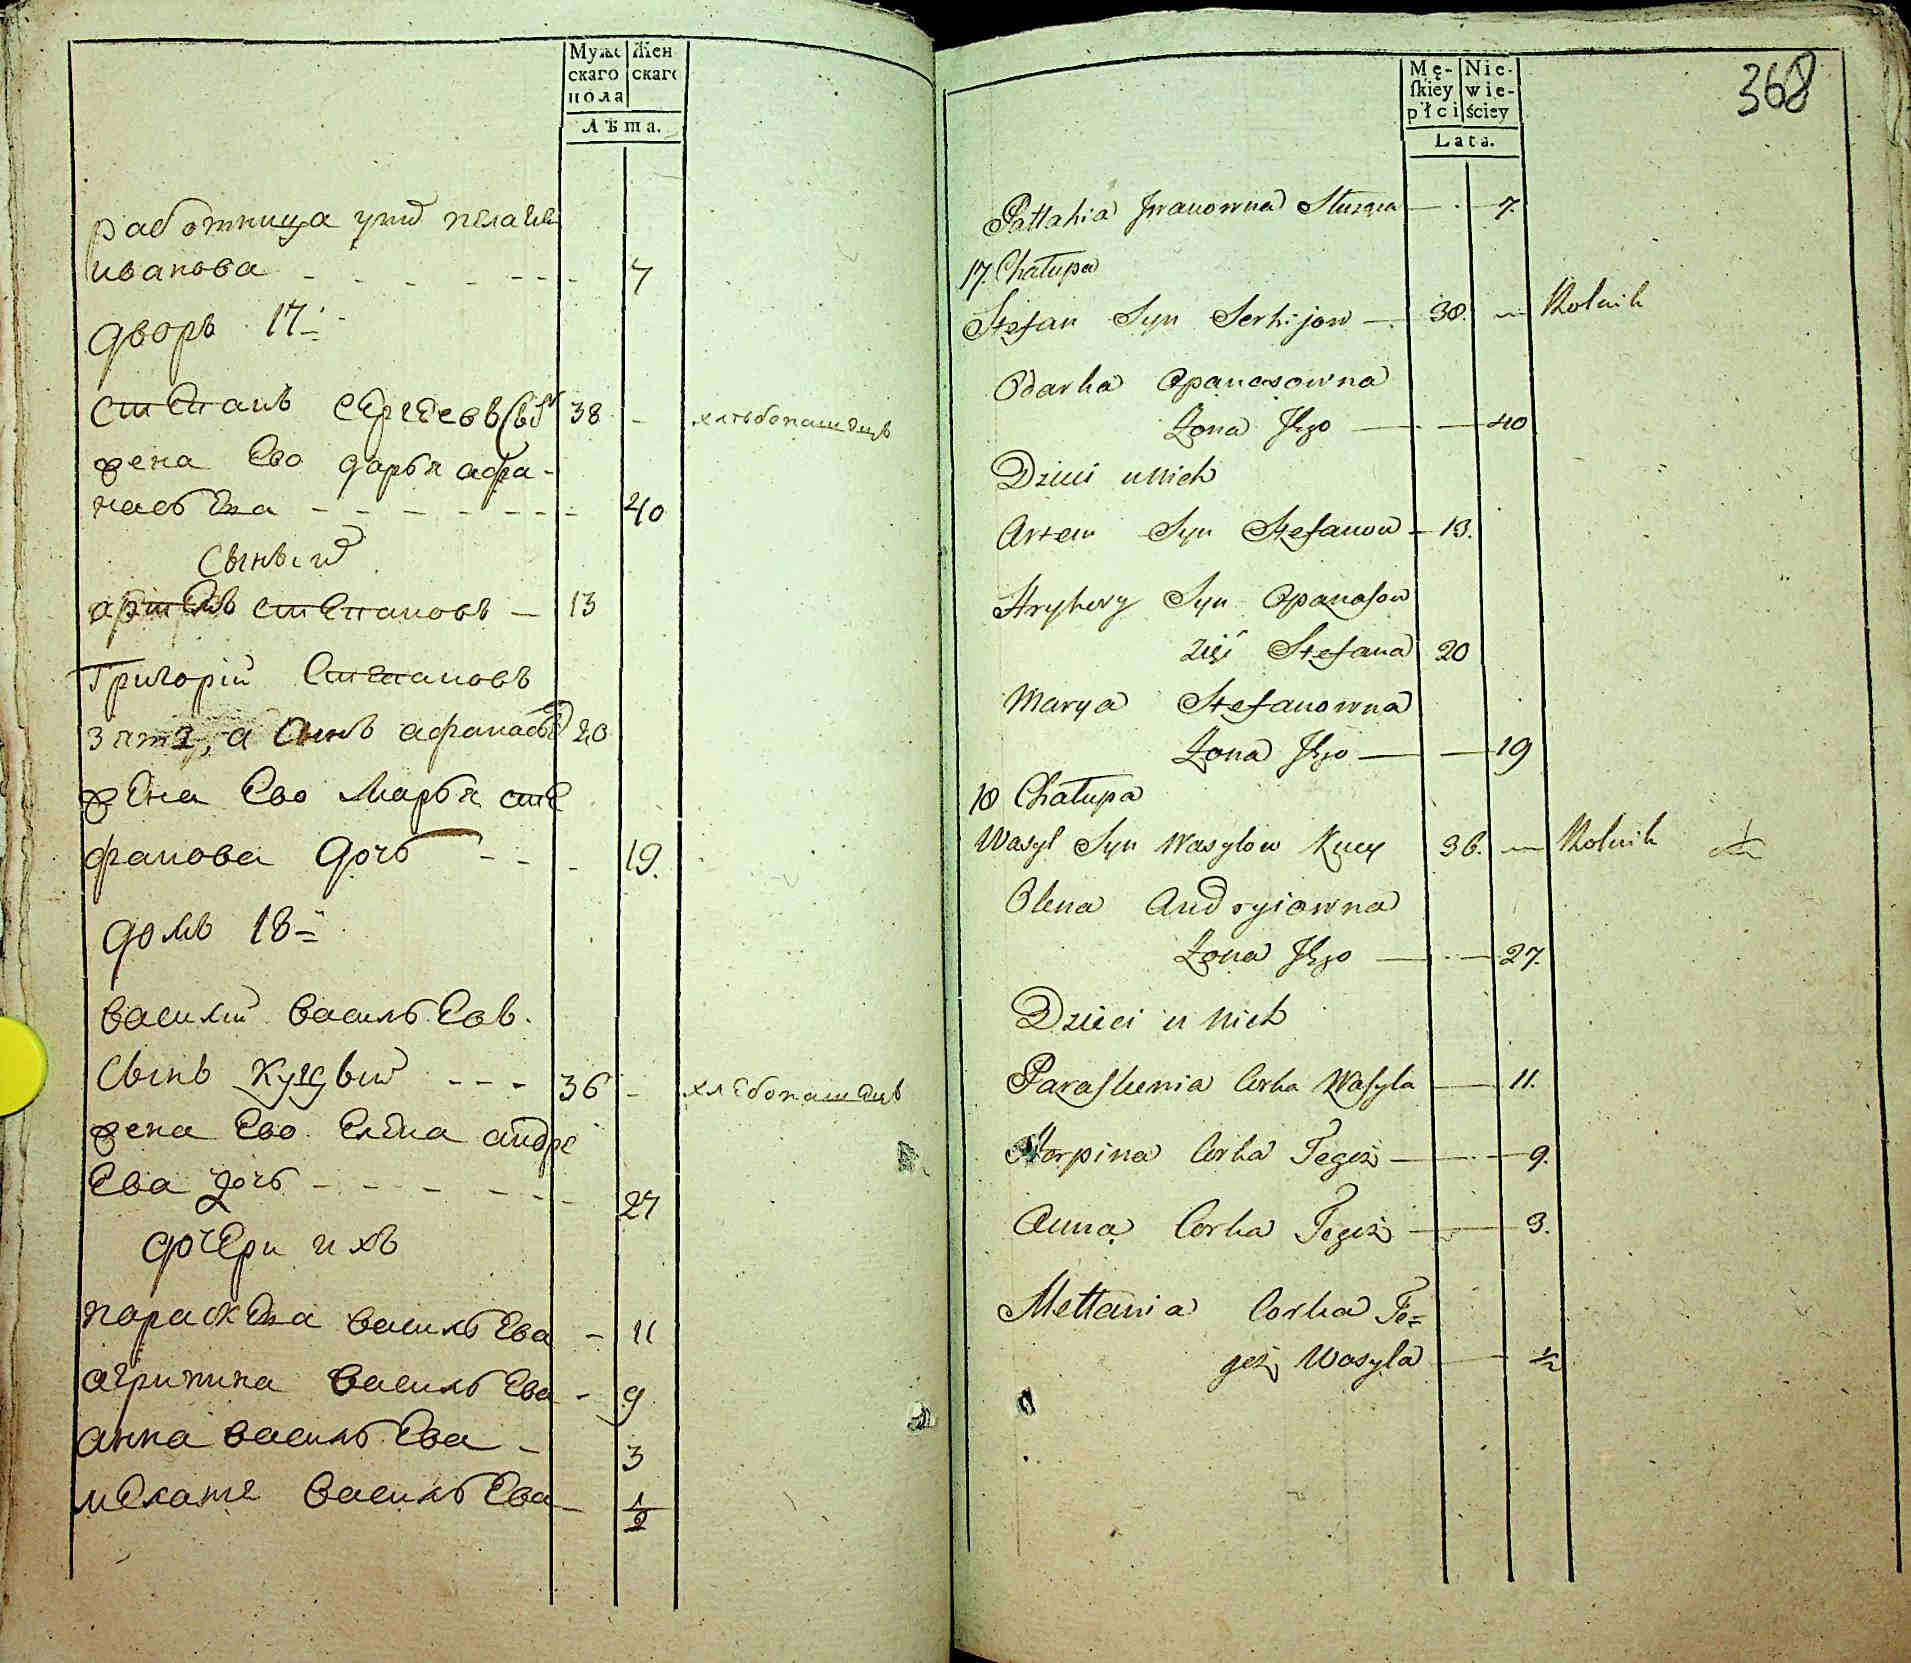 Муже Жен
скаго скаго
пола
Лѣта.
работница унихъ пелагея
иванова - - - - - - - 7
дворъ 17й
степанъ сергеевъ сынъ 38 - хлѣбопашецъ
жена Ево дарья афа-
насьева - - - - - - - 40
Сынъ их
артемъ степановъ - 13
Григорій Степановъ
зять, а сынъ афанасьев 20
жена Ево Марья сте
фанова дочь - - - 19.
домъ 18й
василий васильевъ.
сынъ - - - 36 - хлебопашецъ
жена Ево Елена андре
Ева дочь - - - - - - 27
дочери ихъ
параскева васильЕва - 11
агрипина васильЕва - 9
анна васильЕва - 3
васильЕва - 1/2
368
Mę- Nie-
ſkiey wie-
płci ściey
Lata.
Pallahia Jwanowna Służąca — · — 7.
17. Chałupa
Stefan Syn Serhijow — 38. — Rolnik
Odarka Opanasowna
Żona Jego — · — 40
Dzieci u Nich
Artem Syn Stefanow — 13.
Hryhory Syn Opanaſow
Zięć Stefana 20
Marya Stefanowna
Żona Jego — — 19
18 Chałupa
Wasyl Syn Wasylow 36. — Rolnik
Olena Andryiowna
Żona Jego — · — 27.
Dzieci u Nich
Paraſkewia Corka Waſyla — 11.
Horpina Corka Tegoż — · — 9.
Anna Corka Tegoż — 3.
Mellania Corka Te=
goż Wasyla — 1/2